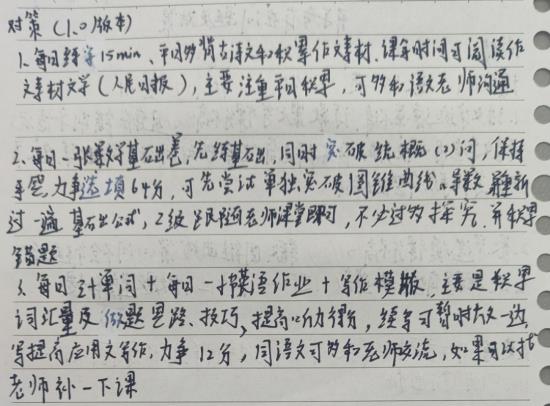 对策（1.0版本）
1、每日练字15min、平日多背古诗文和积累作文素材，课余时间可阅读作
文素材文学（人民日报），主要注重平日积累，可多和语文老师沟通
2、每日一张数学基础卷，先练基础，同时突破统概(2)问，保持
手感，力争选填64分，可先尝试单独突破圆锥曲线、导数，并重新
过一遍基础公式，二级跟随老师课堂即可，不必过多探究，并积累
错题
3、每日3+单词+每日一书英语作业+写作模版，主要是积累
词汇量及做题思路、技巧，提高听力得分，续写可暂时放一边，
写提高应用文写作，力争12分，同语文可多和老师交流，如果可以找
老师补一下课